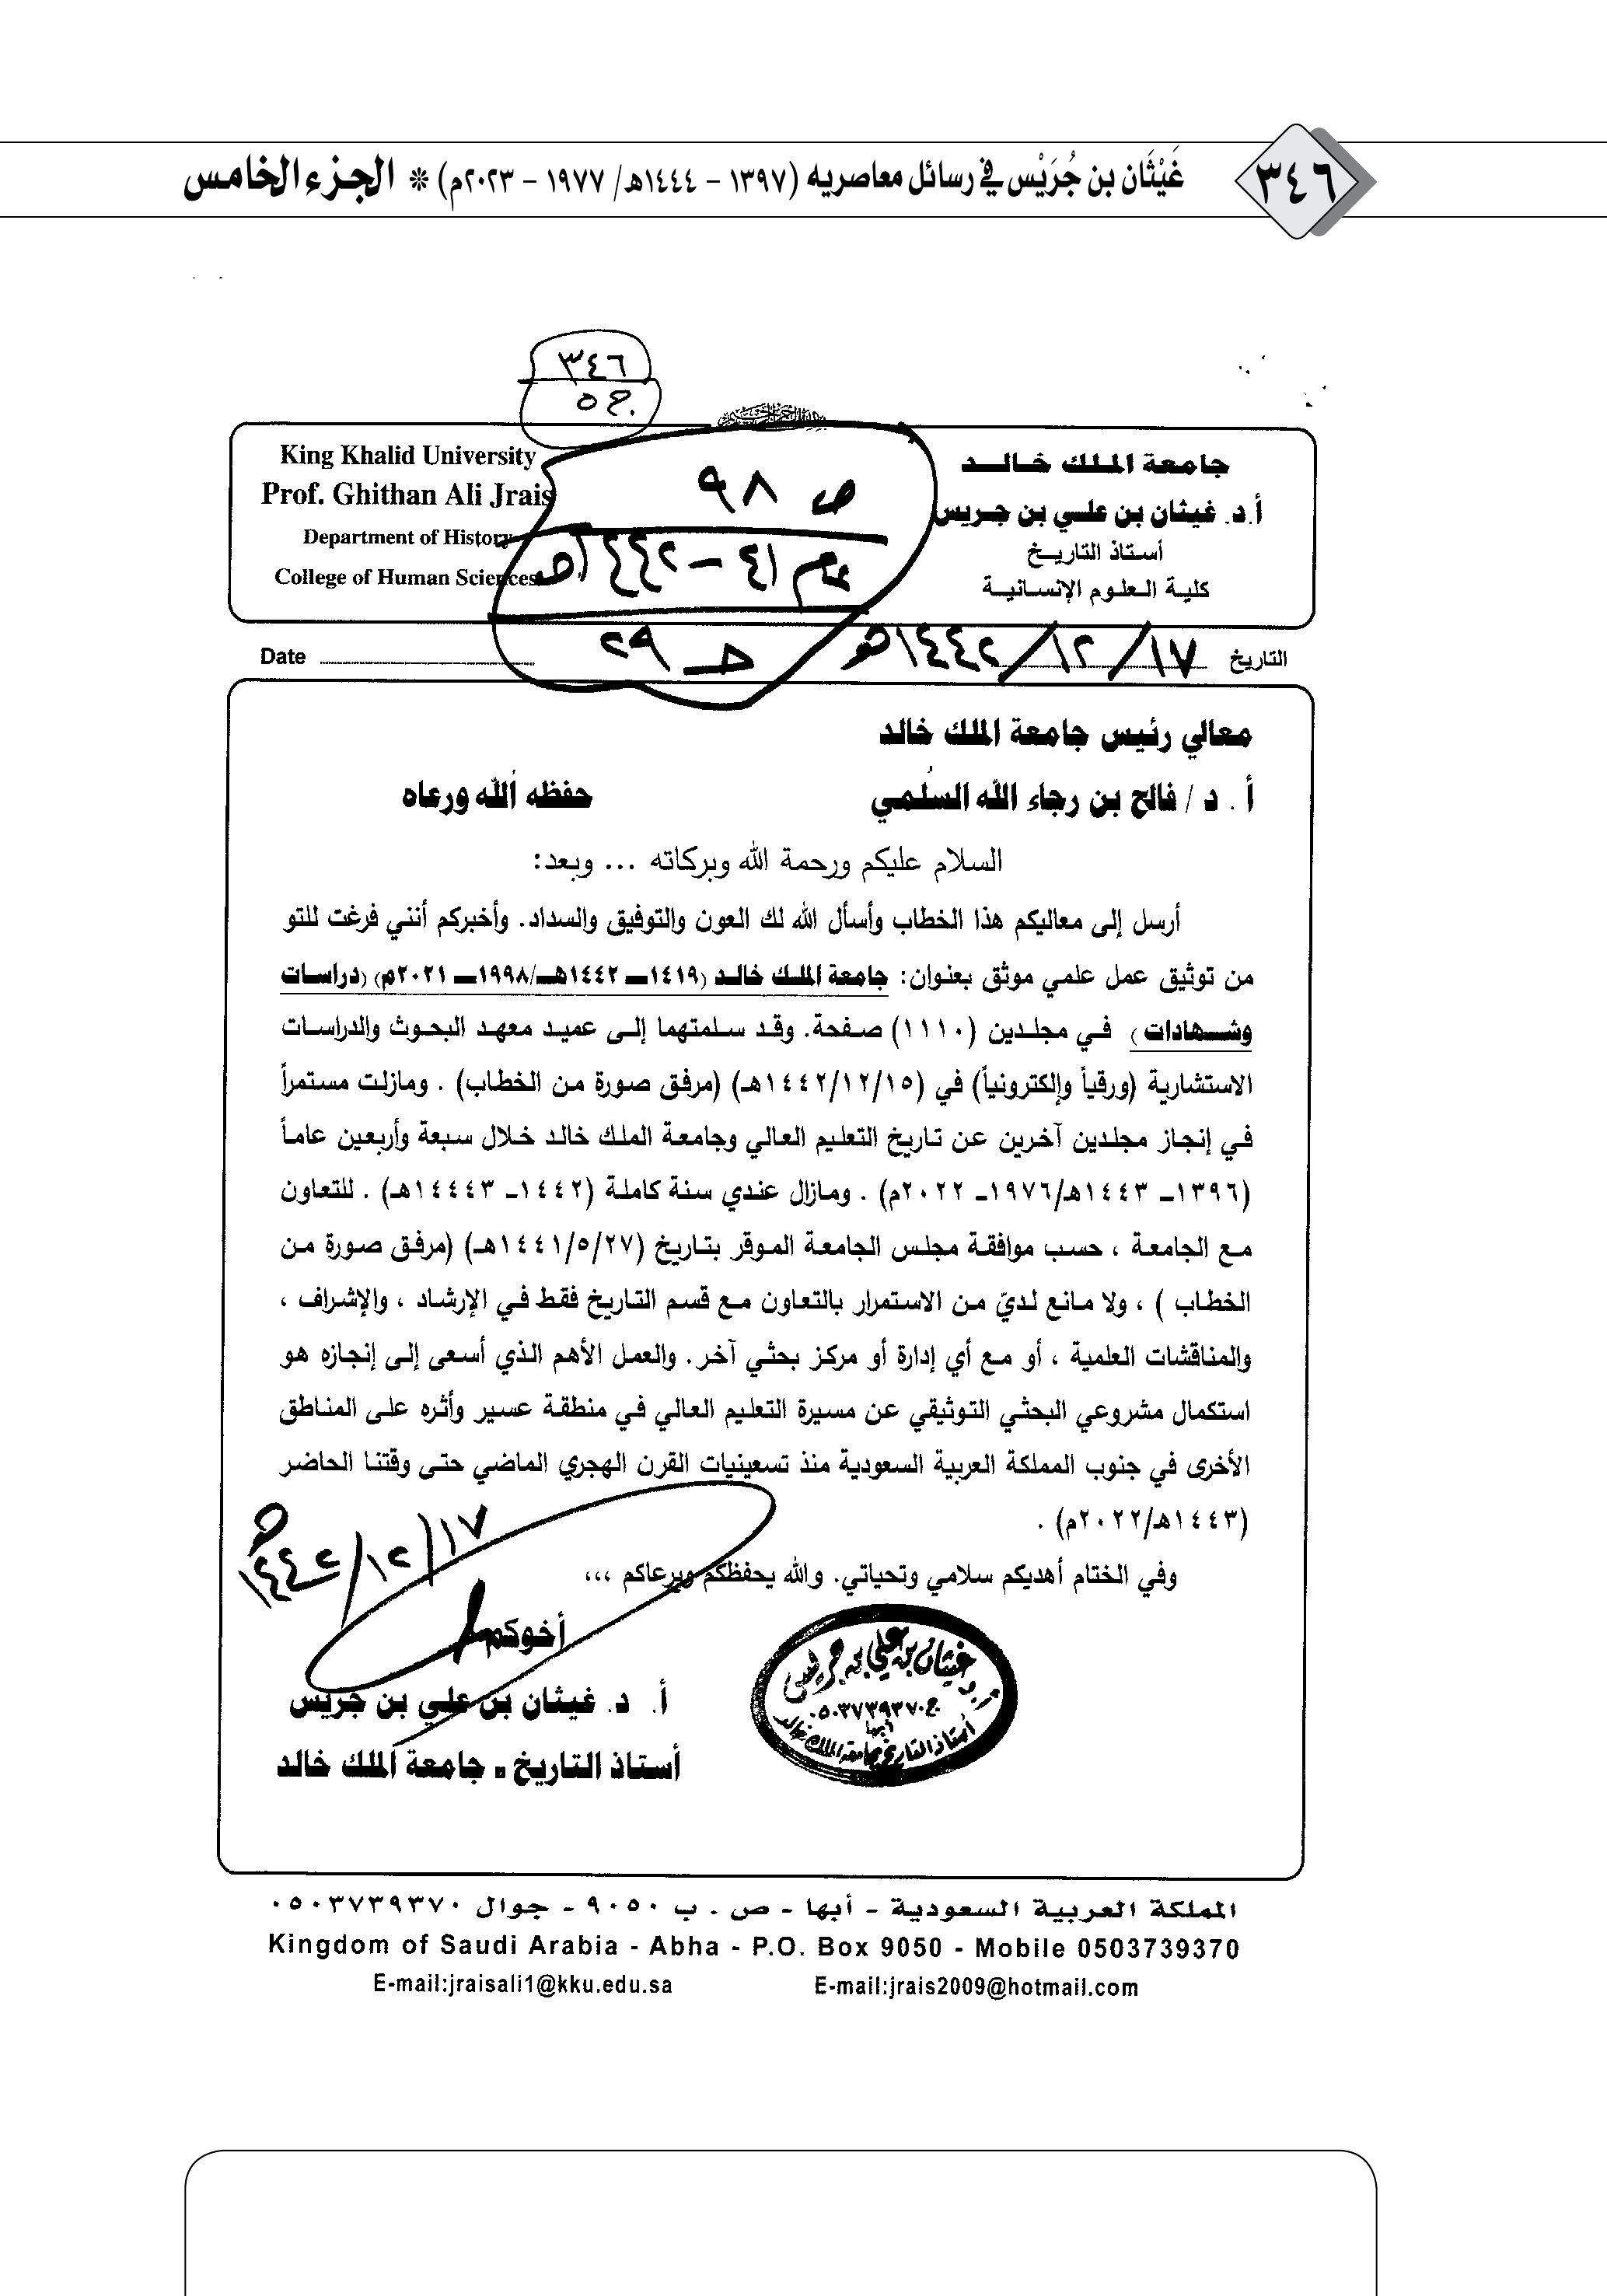 ٣٤٦
غَيْثَان بن جُرَيْس في رسائل معاصريه (١٣٩٧ - ١٤٤٤هـ/ ١٩٧٧ - ٢٠٢٣م) * الجزء الخامس
٣٤٦
ج ٥
جامعة الملك خالد
أ.د. غيثان بن علي بن جريس
أستاذ التاريخ
كلية العلوم الإنسانية
King Khalid University
Prof. Ghithan Ali Jrais
Department of History
College of Human Sciences
ص ٩٨
عام ٤١ - ١٤٤٢هـ
ج ٢٩
التاريخ ١٧/١٢/١٤٤٢هـ
Date
معالي رئيس جامعة الملك خالد
أ . د / فالح بن رجاء الله السُلمي حفظه الله ورعاه
السلام عليكم ورحمة الله وبركاته ... وبعد:
أرسل إلى معاليكم هذا الخطاب وأسأل الله لك العون والتوفيق والسداد. وأخبركم أنني فرغت للتو
من توثيق عمل علمي موثق بعنوان: جامعة الملك خالد (١٤١٩ـ ١٤٤٢هـ/١٩٩٨ـ ٢٠٢١م) (دراسات
وشهادات ) في مجلدين (١١١٠) صفحة. وقد سلمتهما إلى عميد معهد البحوث والدراسات
الاستشارية (ورقياً وإلكترونياً) في (١٤٤٢/١٢/١٥هـ) (مرفق صورة من الخطاب) . ومازلت مستمراً
في إنجاز مجلدين آخرين عن تاريخ التعليم العالي وجامعة الملك خالد خلال سبعة وأربعين عاماً
(١٣٩٦ـ ١٤٤٣هـ/١٩٧٦ـ ٢٠٢٢م) . ومازال عندي سنة كاملة (١٤٤٢ـ ١٤٤٤٣هـ) . للتعاون
مع الجامعة ، حسب موافقة مجلس الجامعة الموقر بتاريخ (١٤٤١/٥/٢٧هـ) (مرفق صورة من
الخطاب ) ، ولا مانع لديّ من الاستمرار بالتعاون مع قسم التاريخ فقط في الإرشاد ، والإشراف ،
والمناقشات العلمية ، أو مع أي إدارة أو مركز بحثي آخر. والعمل الأهم الذي أسعى إلى إنجازه هو
استكمال مشروعي البحثي التوثيقي عن مسيرة التعليم العالي في منطقة عسير وأثره على المناطق
الأخرى في جنوب المملكة العربية السعودية منذ تسعينيات القرن الهجري الماضي حتى وقتنا الحاضر
(١٤٤٣هـ/٢٠٢٢م) .
وفي الختام أهديكم سلامي وتحياتي. والله يحفظكم ويرعاكم ،،،
١٧/١٢/١٤٤٢هـ
أخوكم
أ. د. غيثان بن علي بن جريس
أستاذ التاريخ - جامعة الملك خالد
أ.د غيثان بن علي بن جريس
ج.٠٥٠٣٧٣٩٣٧٠
أبها
أستاذ التاريخ بجامعة الملك خالد
المملكة العربية السعودية - أبها - ص . ب ٩٠٥٠ - جوال ٠٥٠٣٧٣٩٣٧٠
Kingdom of Saudi Arabia - Abha - P.O. Box 9050 - Mobile 0503739370
E-mail:jraisali1@kku.edu.sa E-mail:jrais2009@hotmail.com